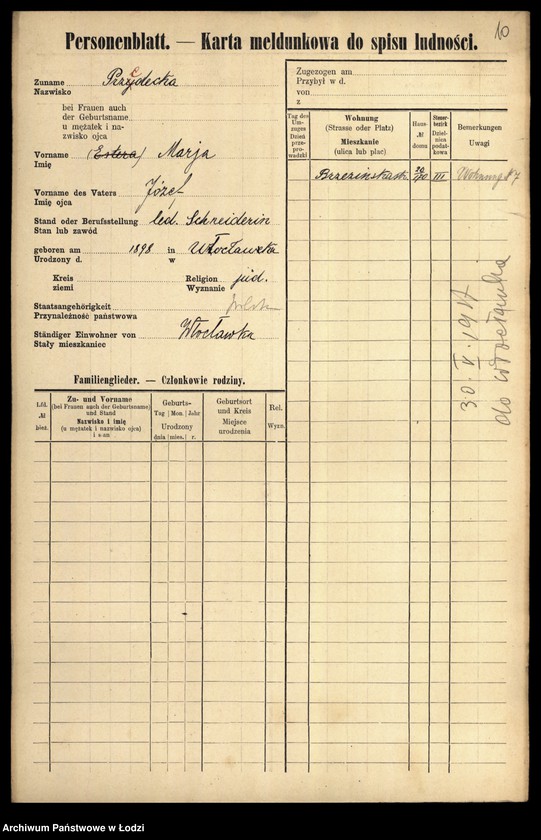 10
Personenblatt. — Karta meldunkowa do spisu ludności.
Zuname Przydecka
Nazwisko
bei Frauen auch
der Geburtsname
u mężatek i na-
zwisko ojca
Vorname (Estera) Marja
Imię
Vorname des Vaters Józef
Imię ojca
Stand oder Berufsstellung led. Schneiderin
Stan lub zawód
geboren am 1898 in Włocławka
Urodzony d. w
Kreis Religion jüd.
ziemi Wyznanie
Staatsangehörigkeit
Przynależność państwowa
Ständiger Einwohner von Włocławka
Stały mieszkaniec
Familienglieder. — Członkowie rodziny.
Lfd. № bież.
Zu- und Vorname
(bei Frauen auch der Geburtsname)
und Stand
Nazwisko i imię
(u mężatek i nazwisko ojca)
i stan
Geburts-
Tag Mon. Jahr
Urodzony
dnia mies. r.
Geburtsort
und Kreis
Miejsce
urodzenia
Rel.
Wyzn.
Zugezogen am
Przybył w d.
von
z
Tag des Um-
zuges
Dzień
prze-
pro-
wadzki
Wohnung
(Strasse oder Platz)
Mieszkanie
(ulica lub plac)
Haus-
№
domu
Steuer-
bezirk
Dziel-
nica
podat-
kowa
Bemerkungen
Uwagi
Brzezińska III Wohnung 7
30. V. 1917
do Włocławka
Archiwum Państwowe w Łodzi